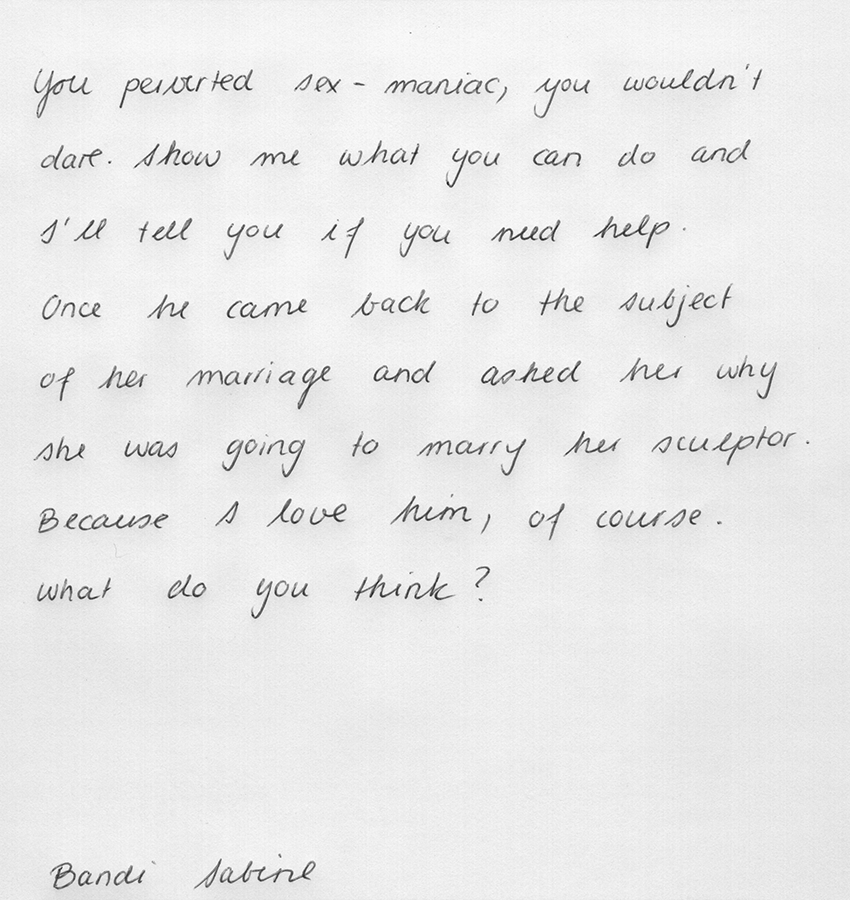 You perverted sex - maniac, you wouldn't
dare. Show me what you can do and
I'll tell you if you need help.
Once he came back to the subject
of her marriage and asked her why
she was going to marry her sculptor.
Because I love him, of course.
What do you think?
Bandi Sabine